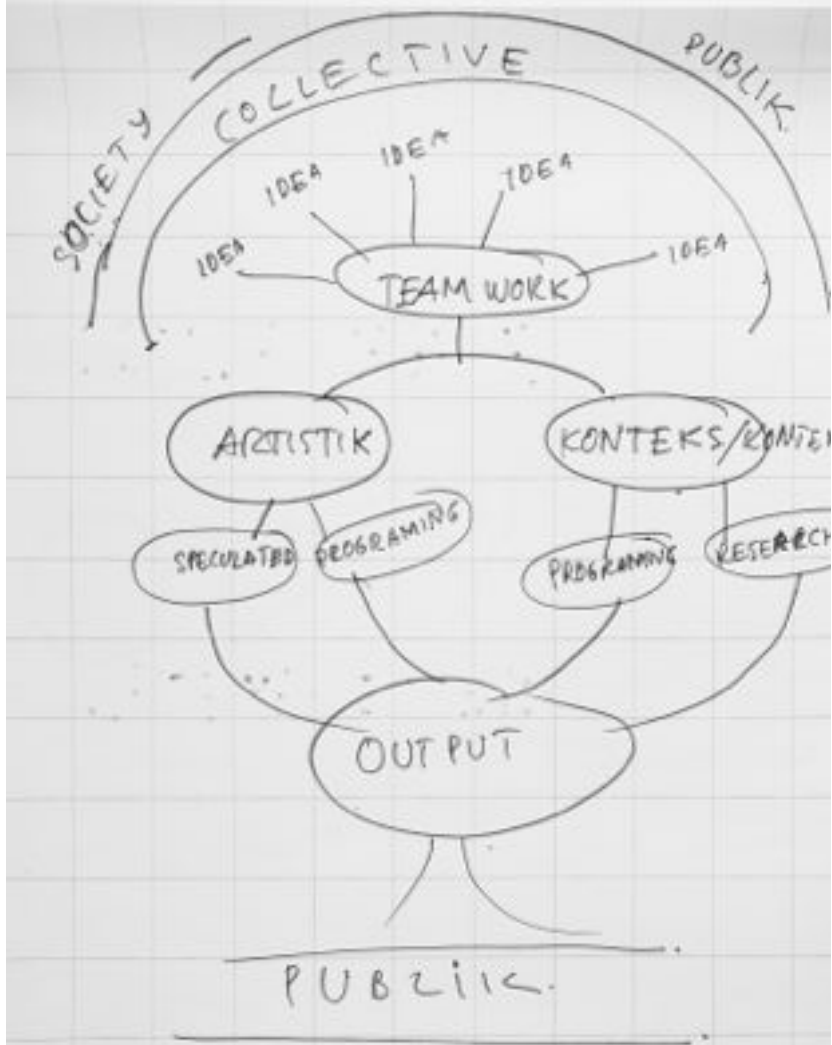 SOCIETY
COLLECTIVE
PUBLIK.
IDEA
IDEA
IDEA
IDEA
IDEA
TEAM WORK
ARTISTIK
KONTEKS/KONTEN
SPECULATED
PROGRAMING
PROGRAMING
RESEARCH
OUTPUT
PUBLIK.